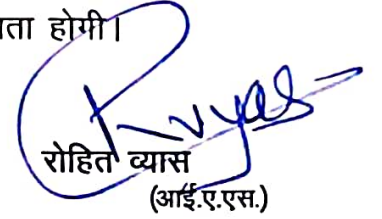 होगी।
Rvyas
रोहित व्यास
(आई.ए.एस.)